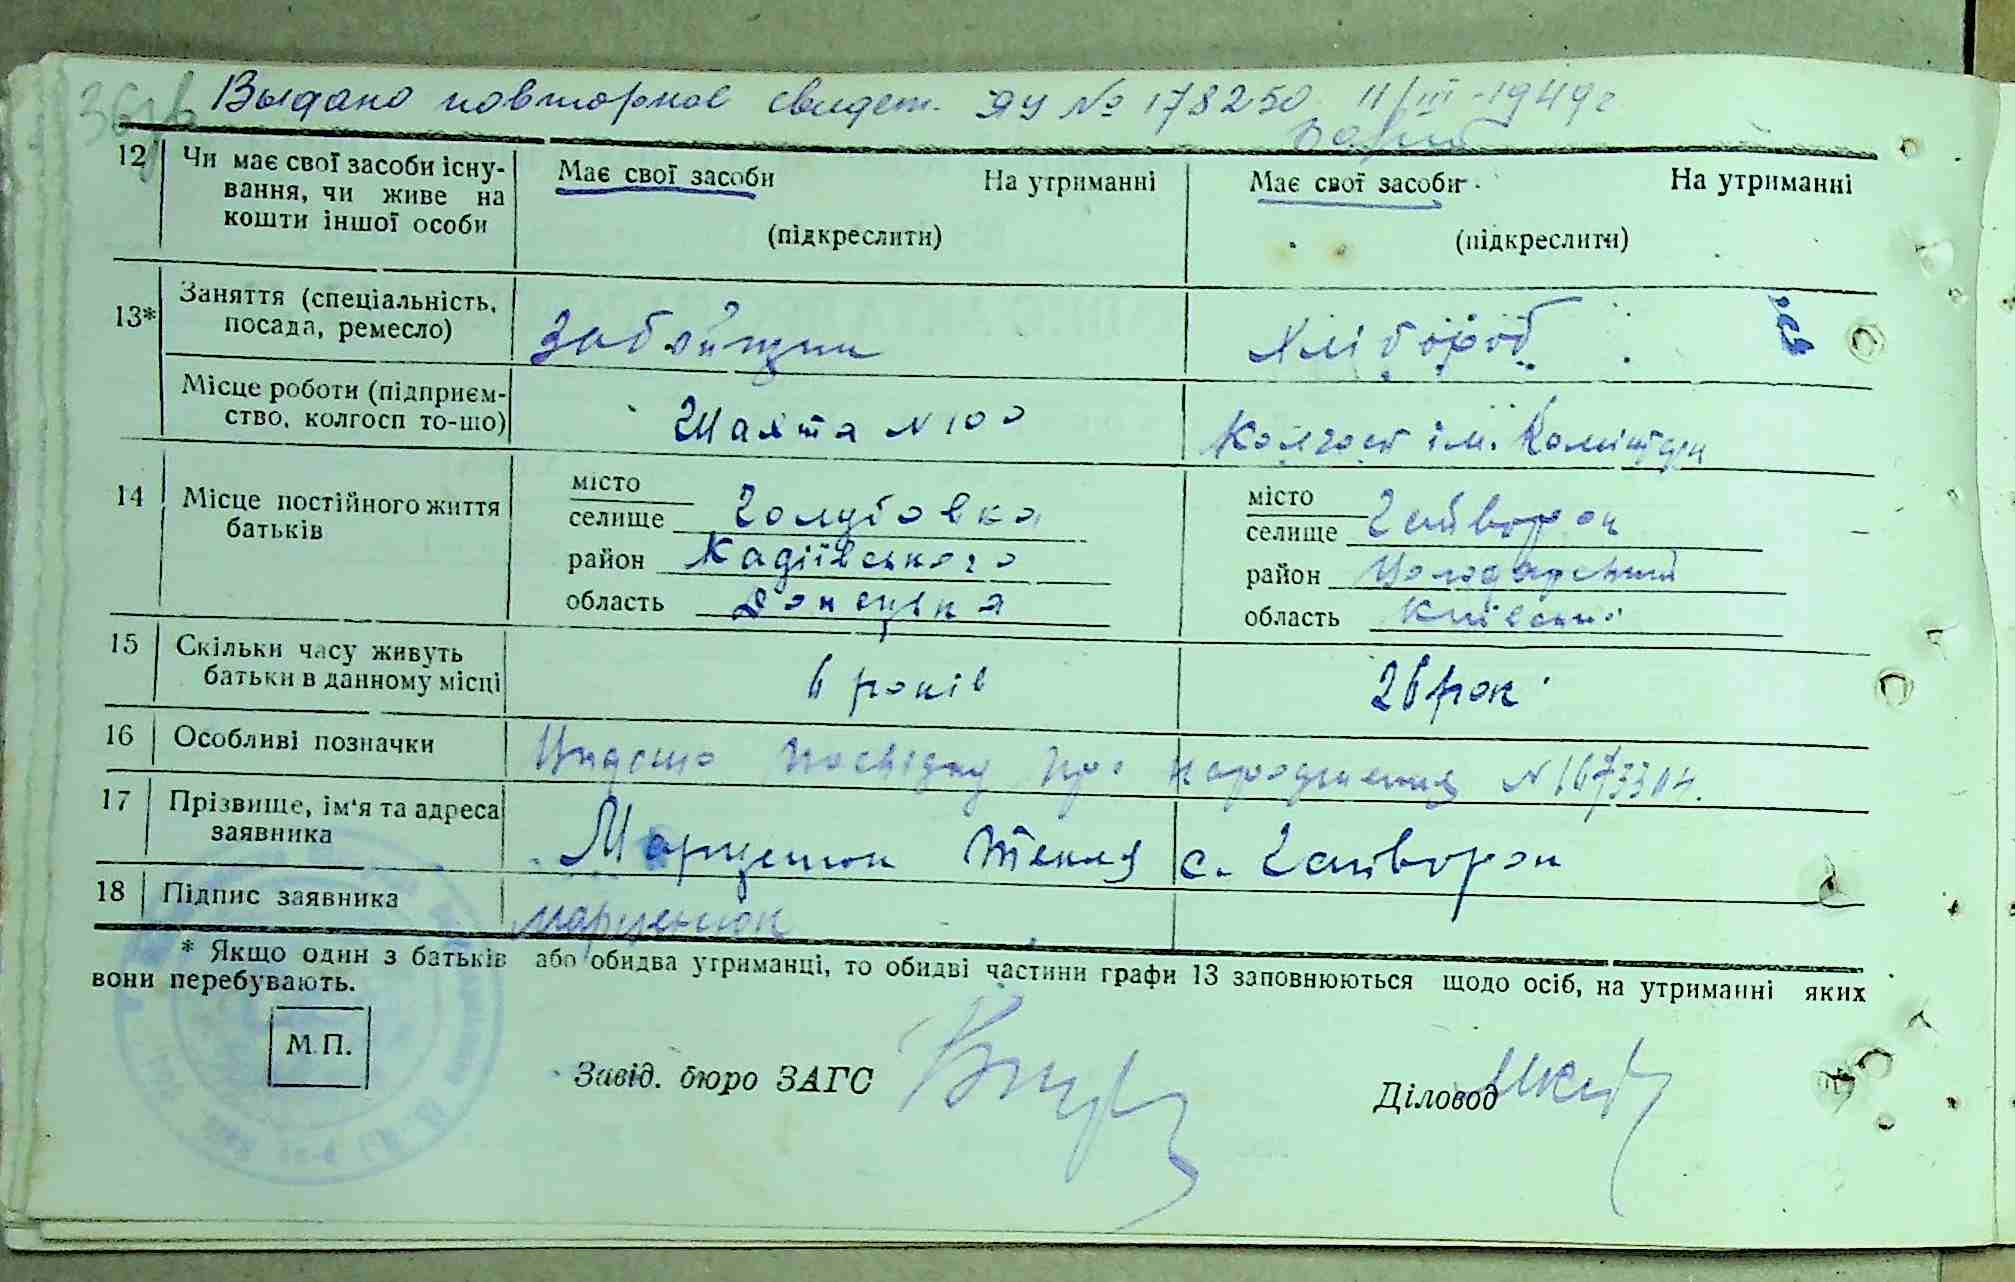 Выдано повторное свидет. ЯУ № 178250 11/III-1949 г
12 Чи має свої засоби існу- Має свої засоби На утриманні Має свої засоби На утриманні
вання, чи живе на
кошти іншої особи (підкреслити) (підкреслити)
13* Заняття (спеціальність, посада, ремесло) Забойщик Хлібороб
Місце роботи (підприєм-
ство, колгосп то-що) Шахта N 100 Колгосп ім.
14 Місце постійного життя батьків
місто
селище Голубовка
район Кадіївського
область Донецька
місто
селище Гайворон
район Володарський
область Київська
15 Скільки часу живуть
батьки в данному місці 6 років 26 рок
16 Особливі позначки Видано посвідку про народження N
17 Прізвище, ім'я та адреса
заявника Марценюк Текля с. Гайворон
18 Підпис заявника Марценюк
* Якщо один з батьків або обидва утриманці, то обидві частини графи 13 заповнюються щодо осіб, на утриманні яких
вони перебувають.
М.П.
Завід. бюро ЗАГС Діловод